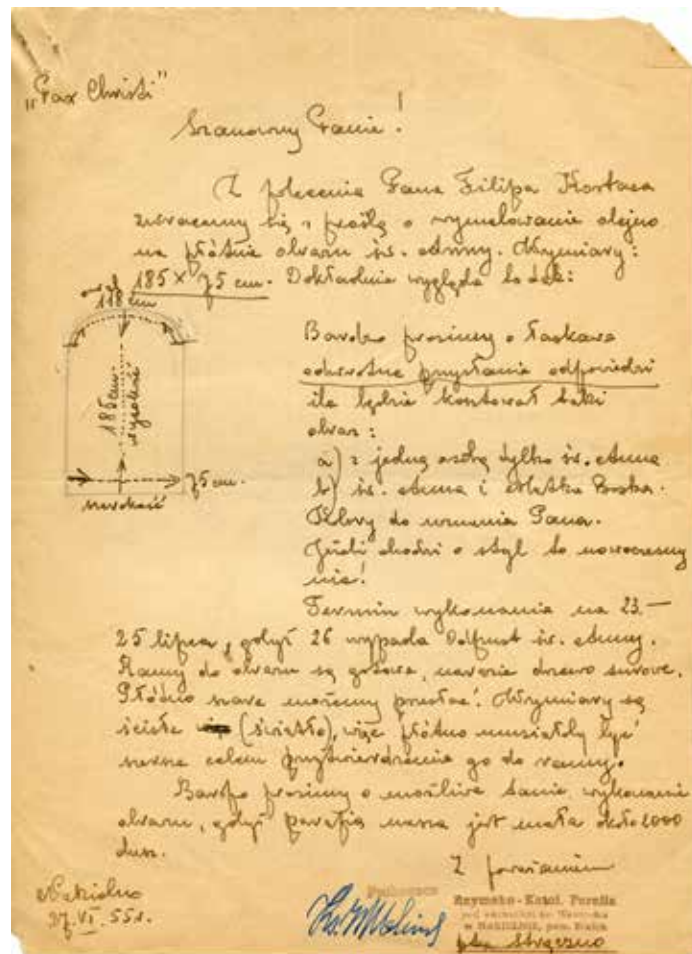 „Pax Christi”
Szanowny Panie!
Z polecenia Pana Filipa Kostasa
zwracamy się z prośbą o wymalowanie olejno
na płótnie obrazu św. Anny. Wymiary:
185 × 75 cm. Dokładnie wygląda to tak:
118 cm
185 cm
wysokość
75 cm.
szerokość
Bardzo prosimy o łaskawe
odwrotne przysłanie odpowiedzi
ile będzie kosztował taki
obraz:
a) z jedną osobą tylko św. Anna
b) św. Anna i Matka Boska.
Kolory do uznania Pana.
Jeśli chodzi o styl to nowoczesny
nie!
Termin wykonania na 23.—
25 lipca, gdyż 26 wypada Odpust św. Anny.
Ramy do obrazu są gotowe, narazie drzewo surowe.
Płótno szare możemy przesłać. Wymiary są
ścisłe (światło), więc płótno musiałoby być
szersze celem przytwierdzenia go do ramy.
Bardzo prosimy o możliwe tanie wykonanie
obrazu, gdyż parafia nasza jest mała około 2000
dusz.
Z poważaniem
Nakielno
27.VI.55r.
Proboszcz
Rzymsko-Katol. Parafia
w NAKIELNIE, pow. Wałcz